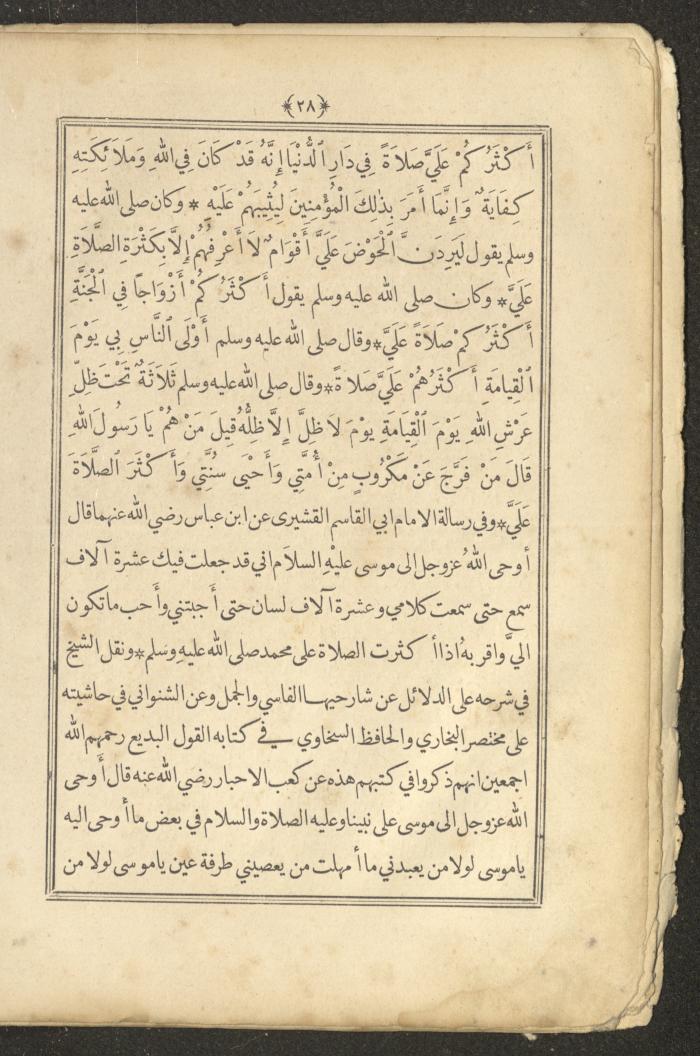 ﴿٢٨﴾
أَكْثَرُكُمْ عَلَيَّ صَلَاةً فِي دَارِ ٱلدُّنْيَا إِنَّهُ قَدْ كَانَ فِي اللهِ وَمَلَائِكَتِهِ
كِفَايَةٌ وَإِنَّمَا أَمَرَ بِذٰلِكَ الْمُؤْمِنِينَ لِيُثِيبَهُمْ عَلَيْهِ * وكان صلى الله عليه
وسلم يقول لَيَرِدَنَّ ٱلْحَوْضَ عَلَيَّ أَقْوَامٌ لَا أَعْرِفُهُمْ إِلَّا بِكَثْرَةِ الصَّلَاةِ
عَلَيَّ * وكان صلى الله عليه وسلم يقول أَكْثَرُكُمْ أَزْوَاجًا فِي الْجَنَّةِ
أَكْثَرُكُمْ صَلَاةً عَلَيَّ * وقال صلى الله عليه وسلم أَوْلَى ٱلنَّاسِ بِي يَوْمَ
ٱلْقِيَامَةِ أَكْثَرُهُمْ عَلَيَّ صَلَاةً * وقال صلى الله عليه وسلم ثَلَاثَةٌ تَحْتَ ظِلِّ
عَرْشِ اللهِ يَوْمَ ٱلْقِيَامَةِ يَوْمَ لَا ظِلَّ إِلَّا ظِلُّهُ قِيلَ مَنْ هُمْ يَا رَسُولَ اللهِ
قَالَ مَنْ فَرَّجَ عَنْ مَكْرُوبٍ مِنْ أُمَّتِي وَأَحْيَى سُنَّتِي وَأَكْثَرَ ٱلصَّلَاةَ
عَلَيَّ * وفي رسالة الامام ابي القاسم القشيرى عن ابن عباس رضي الله عنهما قال
أوحى اللهُ عزوجل الى موسى عليْهِ السلاَم اني قد جعلت فيك عشرة آلاف
سمع حتى سمعت كلامي وعشرة آلاف لسان حتى أجبتني وأحب ما تكون
اليَّ واقربهُ اذا أكثرت الصلاة على محمد صلى الله عليهِ وسلم * ونقل الشيخ
في شرحه على الدلائل عن شارحيها الفاسي والجمل وعن الشنواني في حاشيته
على مختصر البخاري والحافظ السخاوي في كتابه القول البديع رحمهم الله
اجمعين انهم ذكروا في كتبهم هذه عن كعب الاحبار رضي الله عنه قال أوحى
الله عزوجل الى موسى على نبينا وعليه الصلاة والسلام في بعض ما أوحى اليه
يا موسى لولا من يعبدني ما أمهلت من يعصيني طرفة عين يا موسى لولا من